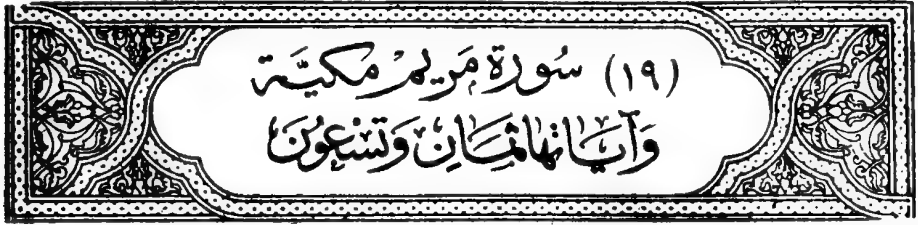 (١٩) سُورَة مَرْيَمْ مَكِيَّة
وَآيَاتهَا ثَمَانِ وَتِسْعُونَ